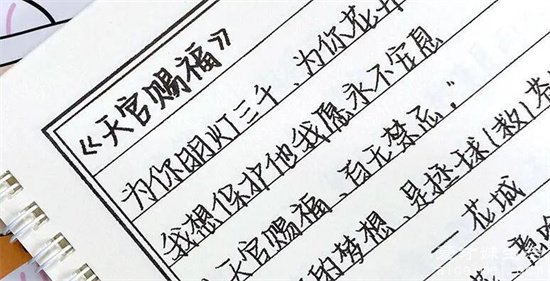 《天官赐福》
为你明灯三千、为你花
我想保护他我愿永不安息
天官赐福、百无禁忌。
的梦想、是拯球(救)苍
——花城